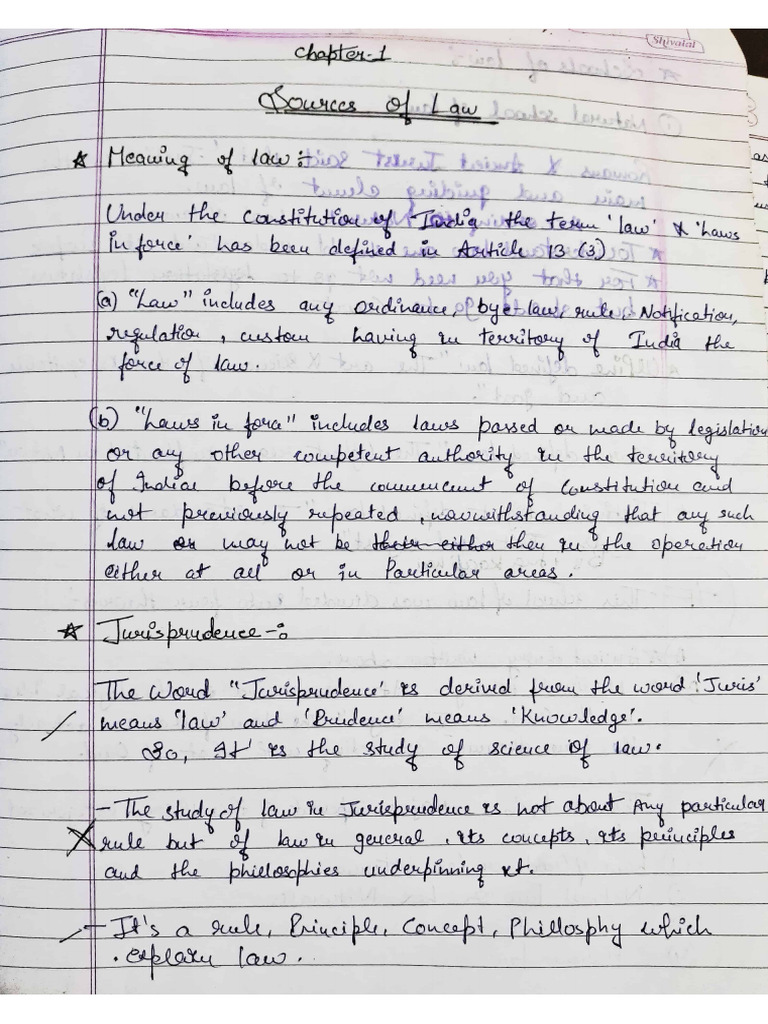 Shivalal
Chapter-1
Sources of Law
* Meaning of law :-
Under the constitution of India the term 'law' & 'Laws
in force' has been defined in Article 13 (3)
(a) "Law" includes any ordinance, bye law, rule, Notification,
regulation, custom having in territory of India the
force of law.
(b) "Laws in force" includes laws passed or made by legislation
or any other competent authority in the territory
of Indian before the commencment of Constitution and
not previously repeated, nowwithstanding that any such
law or may not be their either then in the operation
either at all or in Particular areas.
* Jurisprudence -:
The word "Jurisprudence' is derived from the word 'Juris'
means 'law' and 'Prudence' means 'Knowledge'.
So, It is the study of science of law.
- The study of law in Jurisprudence is not about Any particular
rule but of law in general, its concepts, its peinciples
and the philosophies underpinning it.
- It's a rule, Principle, Concept, Phillosphy which
. explain law.